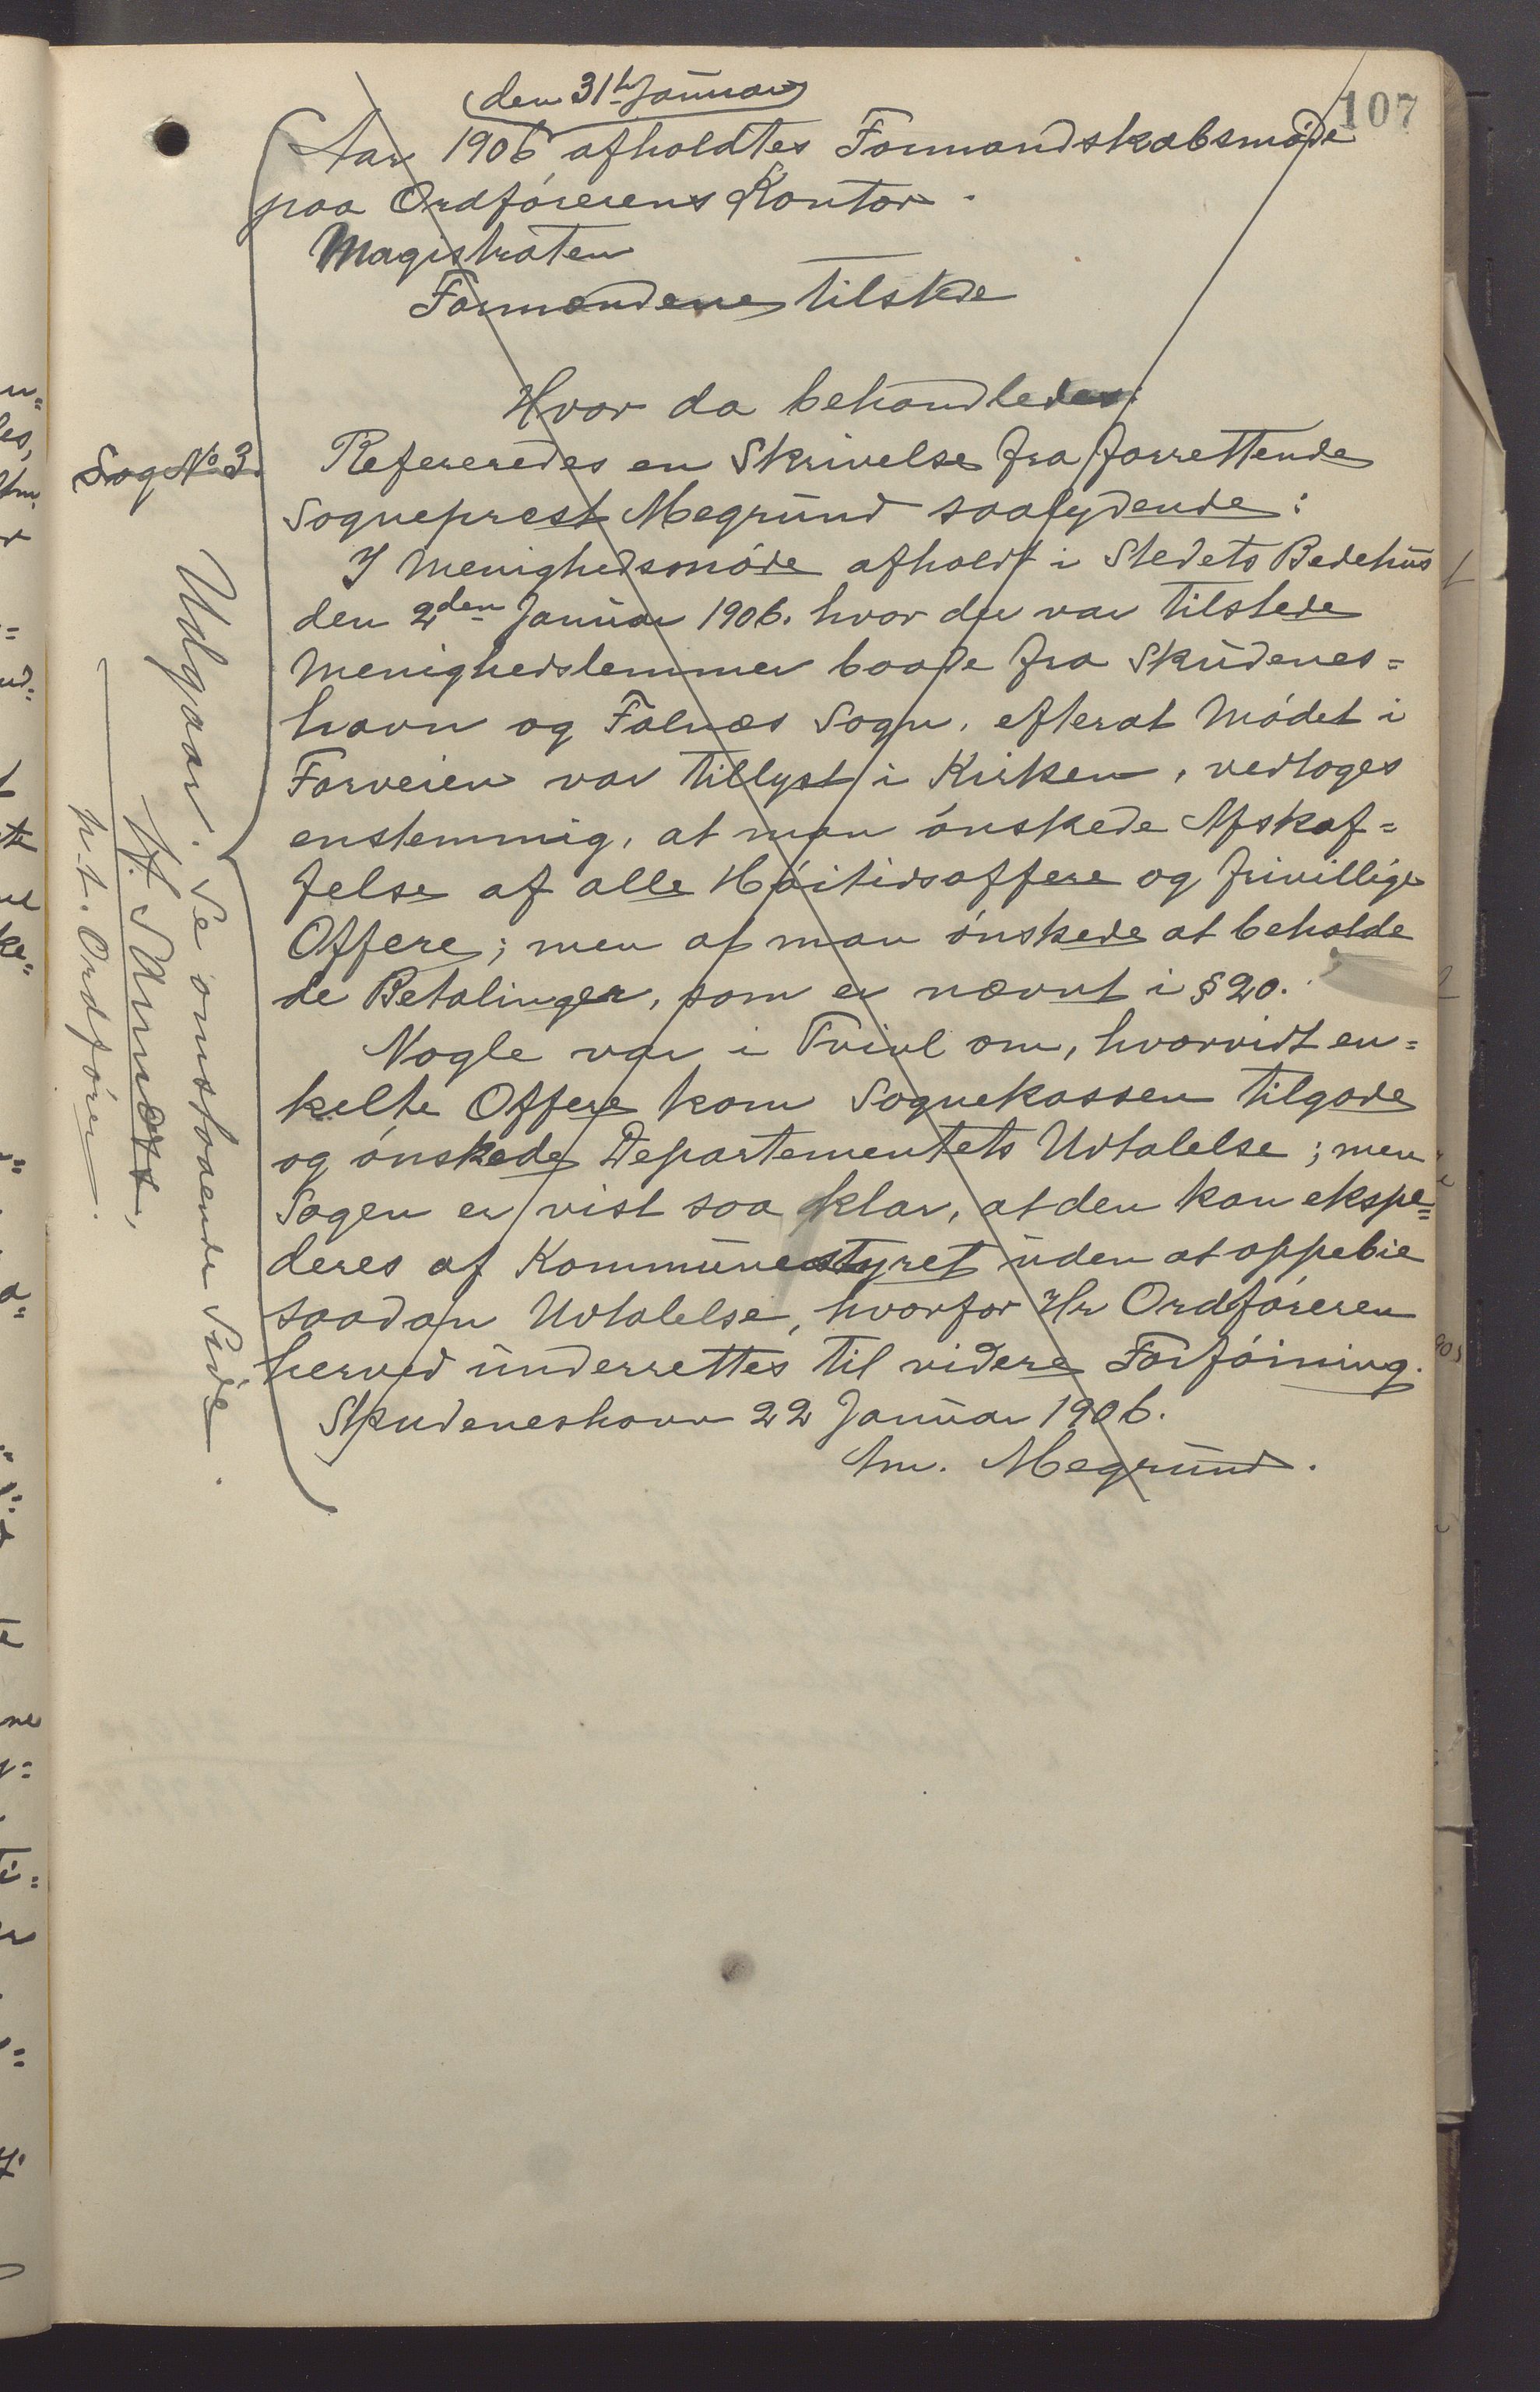 107
den 31te Januar
Aar 1906 afholdtes Formandskabsmøde
paa Ordførerens Kontor.
Magistraten
Formændene tilstede
Hvor da behandledes:
Sag No 3.
Refereredes en Skrivelse fra forrettende
Sogneprest Megrund saalydende:
I Menighedsmøde afholdt i Stedets Bedehus
den 2den Januar 1906. hvor der var tilstede
Menighedslemmer baade fra Skudenes=
havn og Falnæs Sogn, efterat Mødet i
Forveien var tillyst i Kirken, vedtoges
enstemmig, at man ønskede Afskaf=
felse af alle Høitidsoffere og frivillige
Offere; men at man ønskede at beholde
de Betalinger, som er nævnt i § 20.
Nogle var i Tvivl om, hvorvidt en=
kelte Offere kom Sognekassen tilgode
og ønskede Departementets Udtalelse; men
Sagen er vist saa klar, at den kan ekspe=
deres af Kommunestyret uden at oppebie
saadan Udtalelse, hvorfor Hr Ordføreren
herved underrettes til videre Forføining.
Skudeneshavn 22 Januar 1906.
Am. Megrund.
Udgaar. Se omstaaende Side.
h.t. Ordfører.